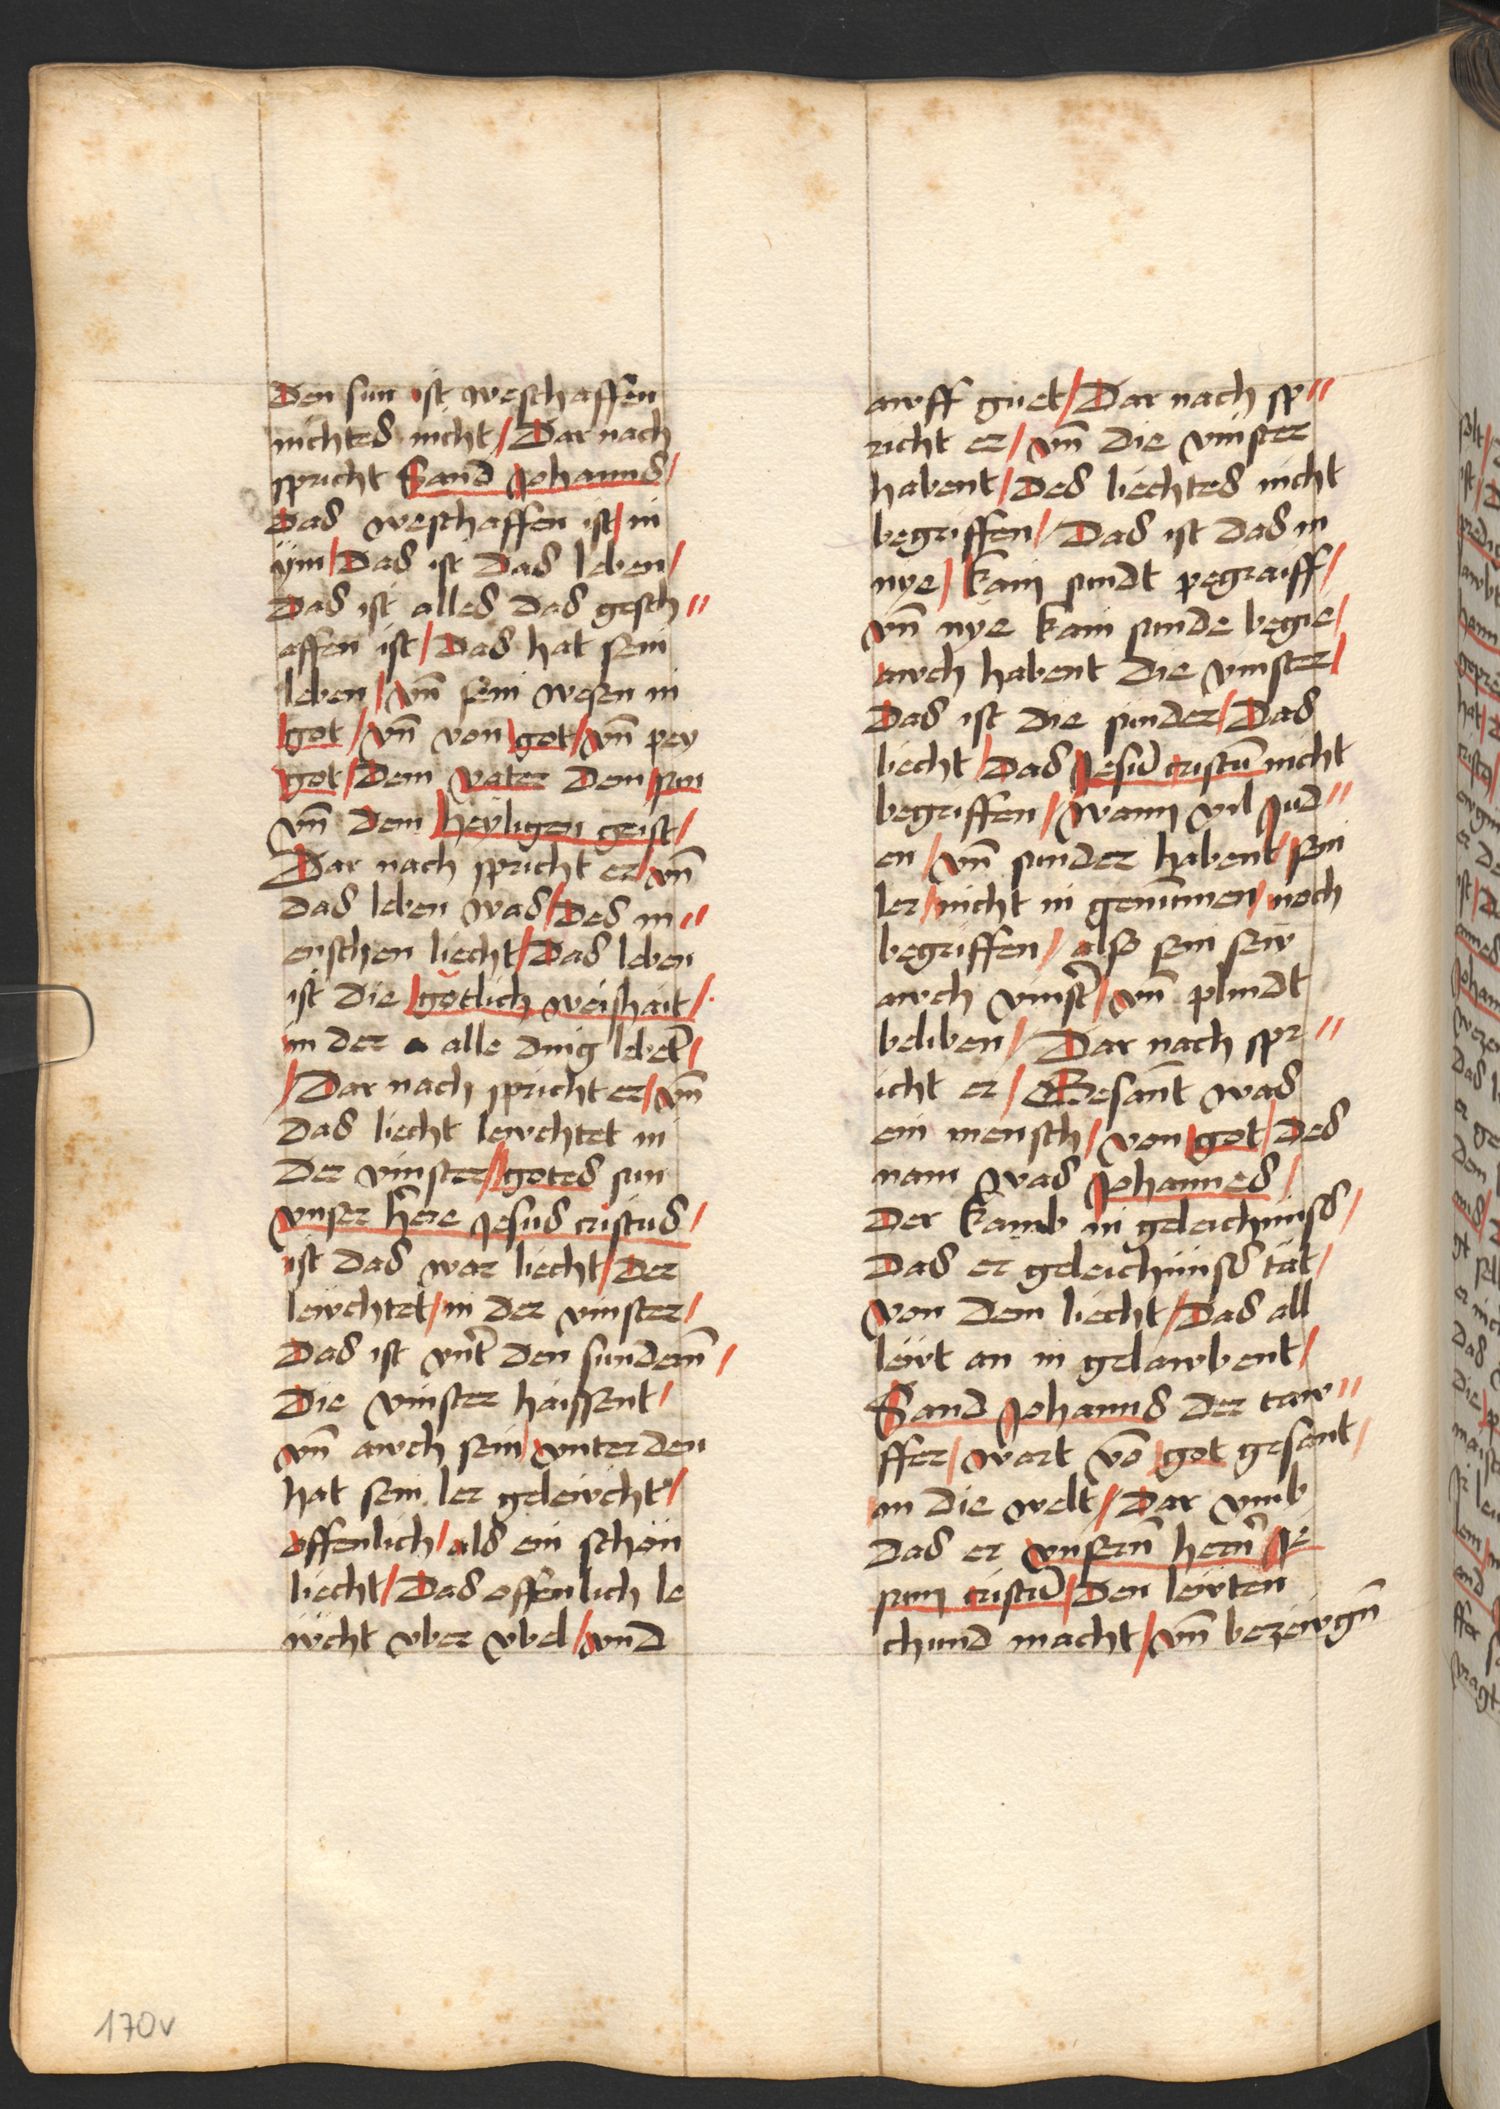 Den sun ist weschaffen
nichtes nicht / Dar nach
spricht Sand Johanns /
Das weschaffen ist / in
ÿm / Das ist das leben /
Das ist alles das gesch //
affen ist / Das hat sein
leben / vn̄ sein wesen in
got / vn̄ von got / vn̄ pey
got / Dem vater Dem sun
vn̄ dem heyligen geist /
Dar nach spricht er / vn̄
das leben was / Des m //
enschen liecht / Das leben
ist die götlich weishait /
in der alle ding lebet /
/ Dar nach spricht er / vn̄
das liecht lewchtet in
Der vinster // gotes sun
vnser h̄ere Jesus cristus /
ist das war liecht / Der
lewchtet / in der vinster /
Das ist vnt̄ den sundern̄ /
Die vinster haissent /
vn̄ awch sein / vnter den
hat sein ler gelewcht /
offenlich / als ein schön
liecht / Das offenlich le
wcht vber vbel / vnd
awff guet / Dar nach sp //
richt er / vn̄ die vinster
habent / Des liechtes nicht
begriffen / Das ist das in
nye / kain sundt pegraiff /
vn̄ nye kain sunde begie /
awch habent die vinster /
Das ist die sunder / Das
liecht / Das Jesū cristū nicht
begriffen / Wann vil Jud //
en / vn̄ sunder habent / sein
ler / nicht in genūmen / noch
begriffen / also sein sew
awch vinst̄ / vn̄ plindt
beliben / Dar nach spr //
icht er / Gesan̄t was
ein mensch / von got / Des
nam was Johannes /
Der kamb in geleichnüss /
Das er geleichnüss tät /
von dem liecht / Das all
lewt an in gelawbent /
Sand Johanns der taw //
ffer / wart vō got gesant /
in die welt / Dar vmb
das er vnsern̄ hern̄ Je
sum cristū / Den lewten
chund macht / vn̄ bezewgn̄
170v